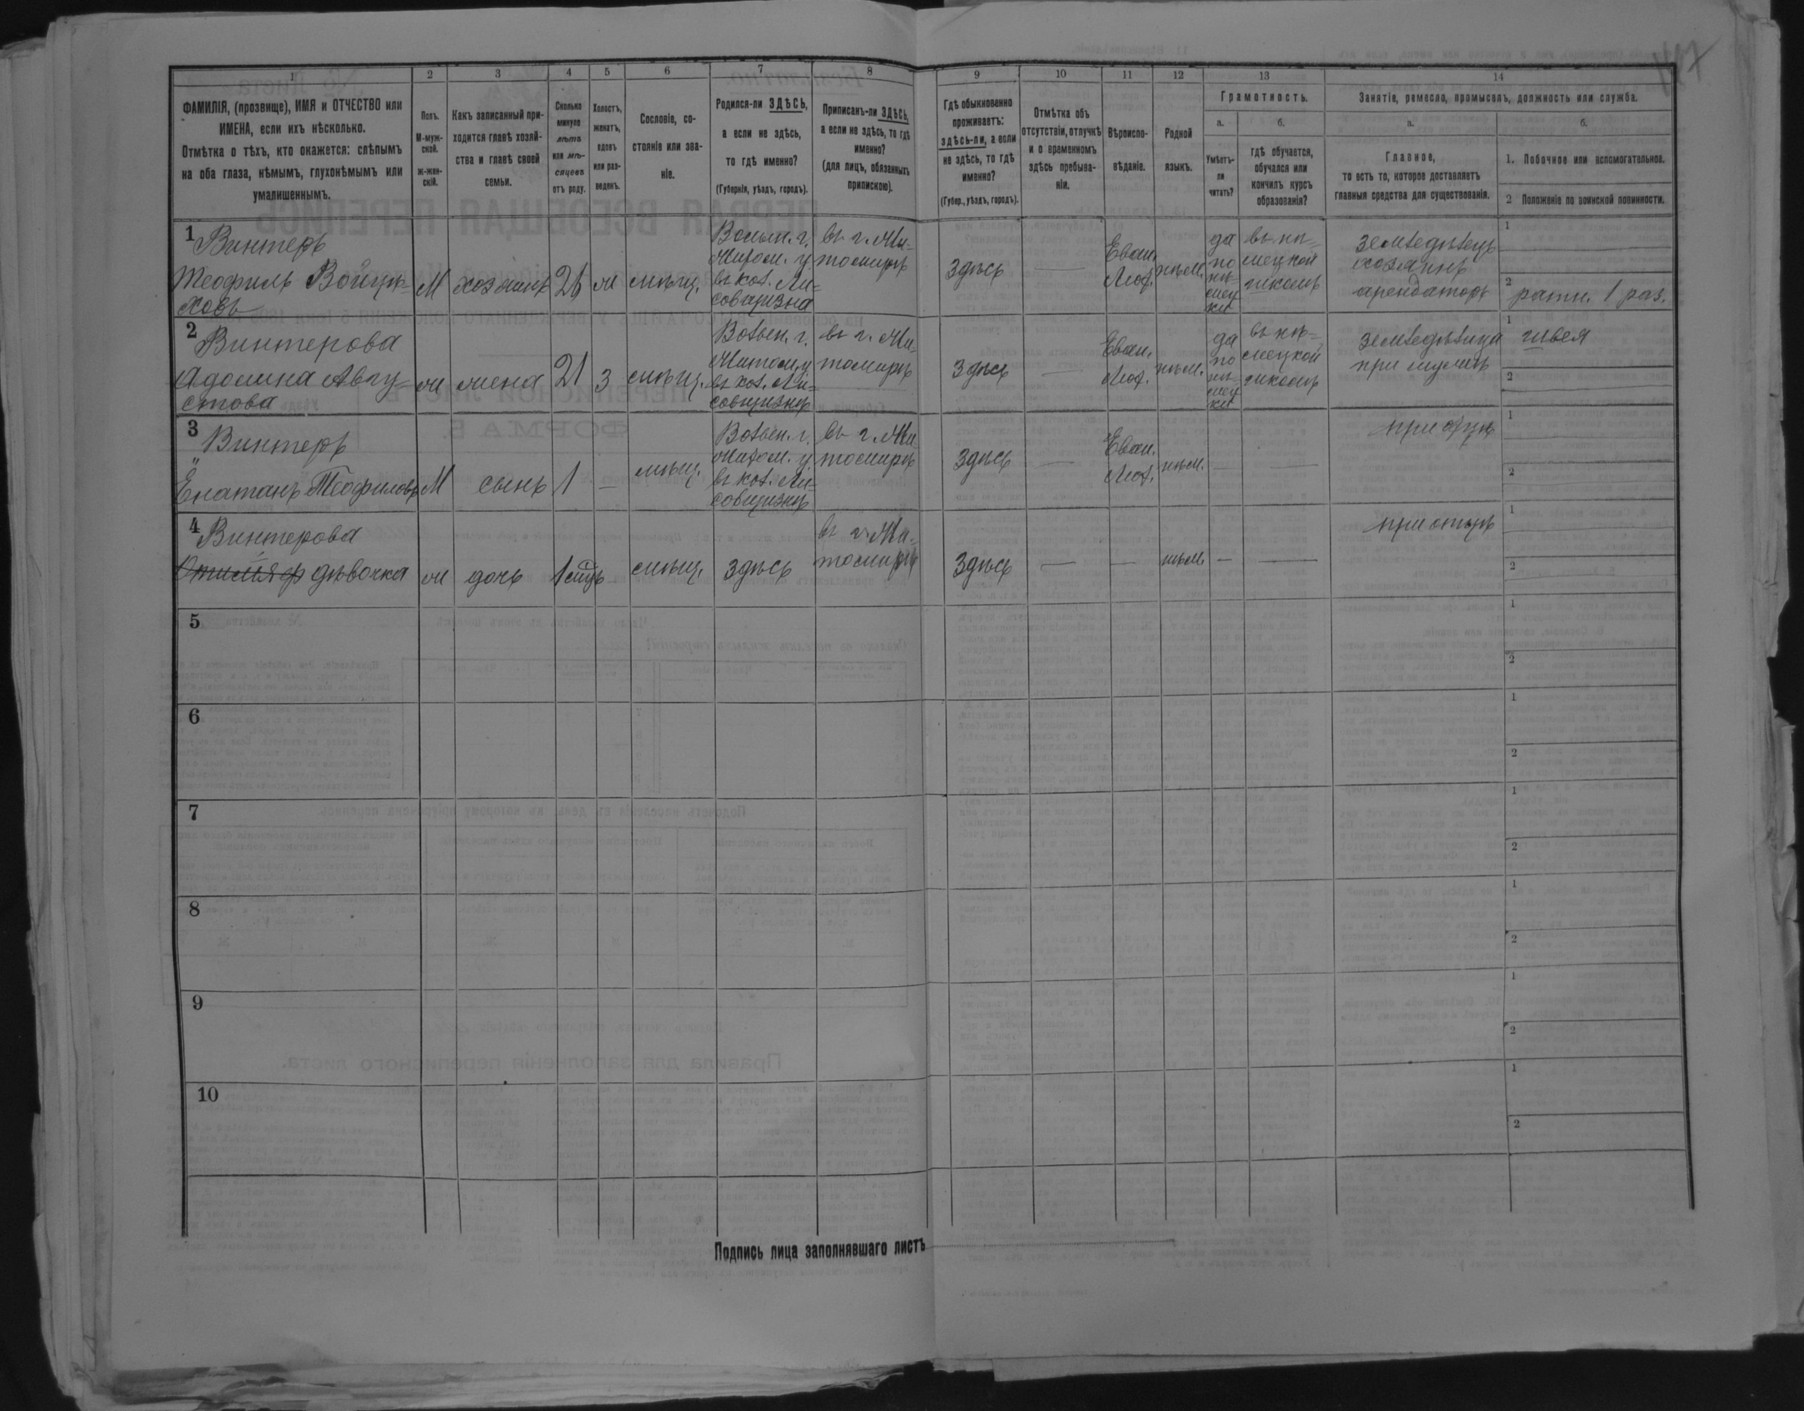 47
1 2 3 4 5 6 7 8 9 10 11 12 13 14
ФАМИЛІЯ, (прозвище), ИМЯ и ОТЧЕСТВО или
ИМЕНА, если ихъ нѣсколько.
Отмѣтка о тѣхъ, кто окажется: слѣпымъ
на оба глаза, нѣмымъ, глухонѣмымъ или
умалишеннымъ.
Полъ.
М-муж-
ской.
ж-жен-
скій.
Какъ записанный при-
ходится главѣ хозяй-
ства и главѣ своей
семьи.
Сколько
минуло
лѣтъ
или мѣ-
сяцевъ
отъ роду.
Холостъ,
женатъ,
вдовъ
или раз-
веденъ.
Сословіе, со-
стояніе или зва-
ніе.
Родился-ли ЗДѢСЬ,
а если не здѣсь,
то гдѣ именно?
(Губернія, уѣздъ, городъ).
Приписанъ-ли ЗДѢСЬ,
а если не здѣсь, то гдѣ
именно?
(для лицъ, обязанныхъ
припискою).
Гдѣ обыкновенно
проживаетъ:
здѣсь-ли, а если
не здѣсь, то гдѣ
именно?
(Губер., уѣздъ, городъ).
Отмѣтка объ
отсутствіи, отлучкѣ
и о временномъ
здѣсь пребыва-
ніи.
Вѣроиспо-
вѣданіе.
Родной
языкъ.
Грамотность.
а.
Умѣетъ-
ли
читать?
б.
гдѣ обучается,
обучался или
кончилъ курсъ
образованія?
Занятіе, ремесло, промыселъ, должность или служба.
а.
Главное,
то есть то, которое доставляетъ
главныя средства для существованія.
б.
1. Побочное или вспомогательное.
2 Положеніе по воинской повинности.
1 Винтеръ
Теофиль
М
хозяинъ
ж
мѣщ.
Волын. г.
Житом. у.
въ кол. Ли-
въ г. Жи-
томирѣ
здѣсь
—
Еван.
Лют.
нѣм.
да
по
нѣ-
мец
ки
въ нѣ-
мецкой
школѣ
земледѣлецъ
хозяинъ
арендаторъ
1
2 ратн. 1 раз.
2 Винтерова
Авгу-
стова
ж
жена
21
З
мѣщ.
Волын. г.
Житом. у
въ кол. Ли-
совщизнѣ
въ г. Жи-
томирѣ
здѣсь
—
Еван.
Лют.
нѣм.
да
по
нѣ-
мец
ки
въ нѣ-
мецкой
школѣ
земледѣлица
при мужѣ
1 швея
2
3 Винтеръ
М
сынъ
1
—
мѣщ.
Волын. г.
Житом. у.
въ кол. Ли-
совщизнѣ
въ г. Жи
томирѣ
здѣсь
—
Еван.
Лют.
нѣм.
— —
при отцѣ
1
2
4 Винтерова
дѣвочка
ж
дочь
мѣщ.
здѣсь
въ г. Жи-
томирѣ
здѣсь
— —
нѣм.
— —
при отцѣ
1
2
5
1
2
6
1
2
7
1
2
8
1
2
9
1
2
10
1
2
Подпись лица заполнявшаго листъ